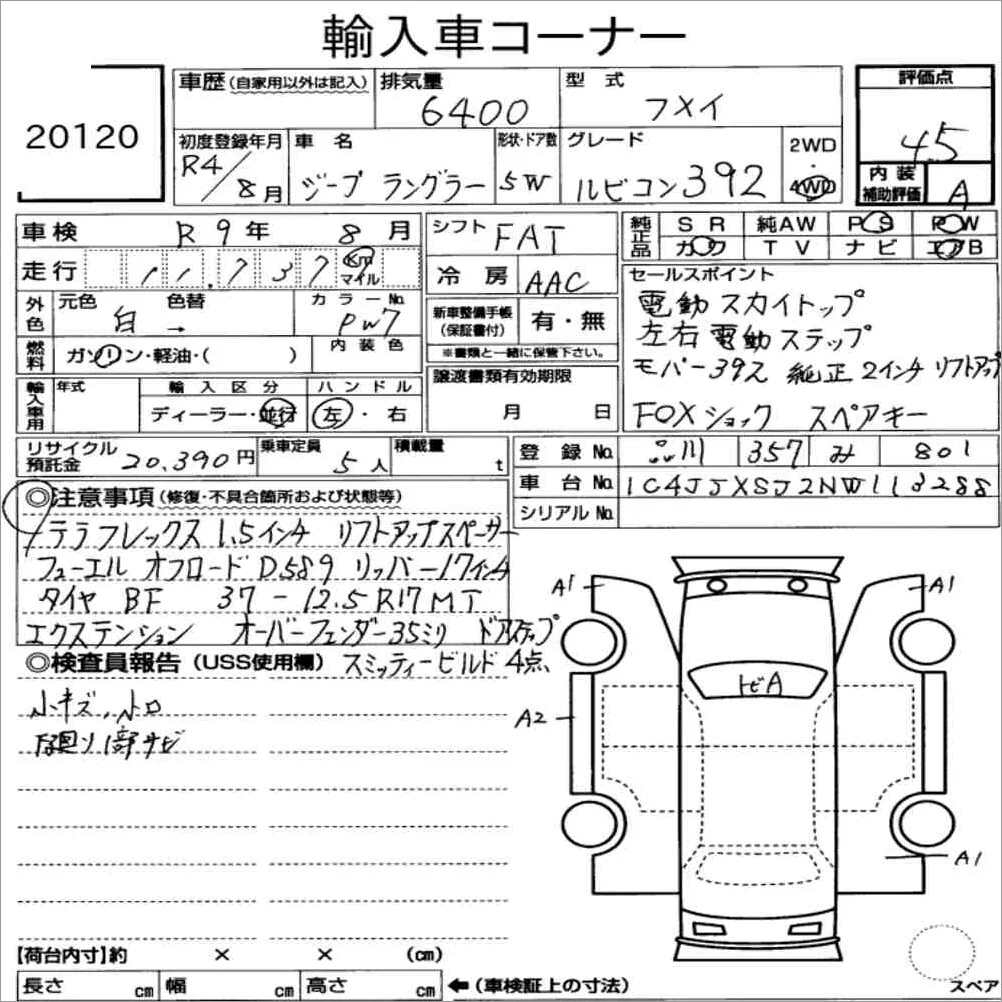 輸入車コーナー
20120
車歴(自家用以外は記入)
排気量
6400
型式
フメイ
評価点
4.5
初度登録年月
R4/8月
車名
ジープ ラングラー
形状・ドア数
5W
グレード
ルビコン392
2WD
・
4WD
内装
補助評価
A
車検 R 9年 8月
走行 11,737 Km
マイル
外色
元色 色替
白 →
カラーNo.
PW7
燃料
ガソリン・軽油・( )
内装色
輸入車用
年式
輸入区分
ディーラー・並行
ハンドル
左・右
シフト FAT
冷房 AAC
新車整備手帳
(保証書付)
有・無
※書類と一緒に保管下さい。
譲渡書類有効期限
月 日
純正品
SR 純AW PS PW
カワ TV ナビ エアB
セールスポイント
電動 スカイトップ
左右 電動 ステップ
モパー392 純正 2インチ リフトアップ
FOXショック スペアキー
リサイクル
預託金
20,390円
乗車定員
5人
積載量
t
登録No. 品川 357 み 801
車台No. 1C4JJXSJ2NW113288
シリアルNo.
◎注意事項(修復・不具合箇所および状態等)
テラフレックス 1.5インチ リフトアップスペーサー
フューエル オフロード D589 リッパー17インチ
タイヤ BF 37-12.5R17 MT
エクステンション オーバーフェンダー35ミリ ドアステップ
◎検査員報告(USS使用欄)
スミッティービルド 4点
小キズ、小凹
下廻り1部サビ
A1
A1
トビA
A2
A1
【荷台内寸】約 × × (cm)
長さ cm 幅 cm 高さ cm ←(車検証上の寸法)
スペア